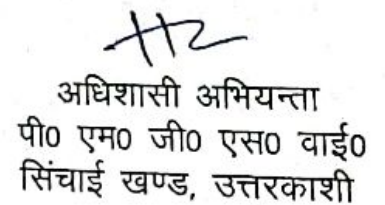 अधिशासी अभियन्ता
पी0 एम0 जी0 एस0 वाई0
सिंचाई खण्ड, उत्तरकाशी